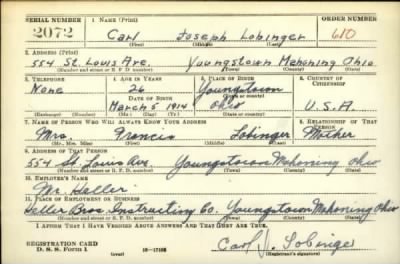 SERIAL NUMBER 1. NAME (Print) ORDER NUMBER
2072 Carl Joseph Lobinger 610
(First) (Middle) (Last)
2. ADDRESS (Print)
554 St. Louis Ave. Youngstown Mahoning Ohio
(Number and street or R. F. D. number) (Town) (County) (State)
3. TELEPHONE 4. AGE IN YEARS 5. PLACE OF BIRTH 6. COUNTRY OF CITIZENSHIP
None 26 Youngstown
DATE OF BIRTH (Town or county)
March 5 1914 Ohio U.S.A.
(Exchange) (Number) (Mo.) (Day) (Yr.) (State or country)
7. NAME OF PERSON WHO WILL ALWAYS KNOW YOUR ADDRESS 8. RELATIONSHIP OF THAT PERSON
Mrs. Francis Lobinger Mother
(Mr., Mrs., Miss) (First) (Middle) (Last)
9. ADDRESS OF THAT PERSON
554 St. Louis Ave Youngstown Mahoning Ohio
(Number and street or R. F. D. number) (Town) (County) (State)
10. EMPLOYER'S NAME
Mr. Heller
11. PLACE OF EMPLOYMENT OR BUSINESS
Heller Bros. Instructing Co. Youngstown Mahoning Ohio
(Number and street or R. F. D. number) (Town) (County) (State)
I AFFIRM THAT I HAVE VERIFIED ABOVE ANSWERS AND THAT THEY ARE TRUE.
REGISTRATION CARD
D. S. S. Form 1 (over) 16—17105 Carl J. Lobinger
(Signature)